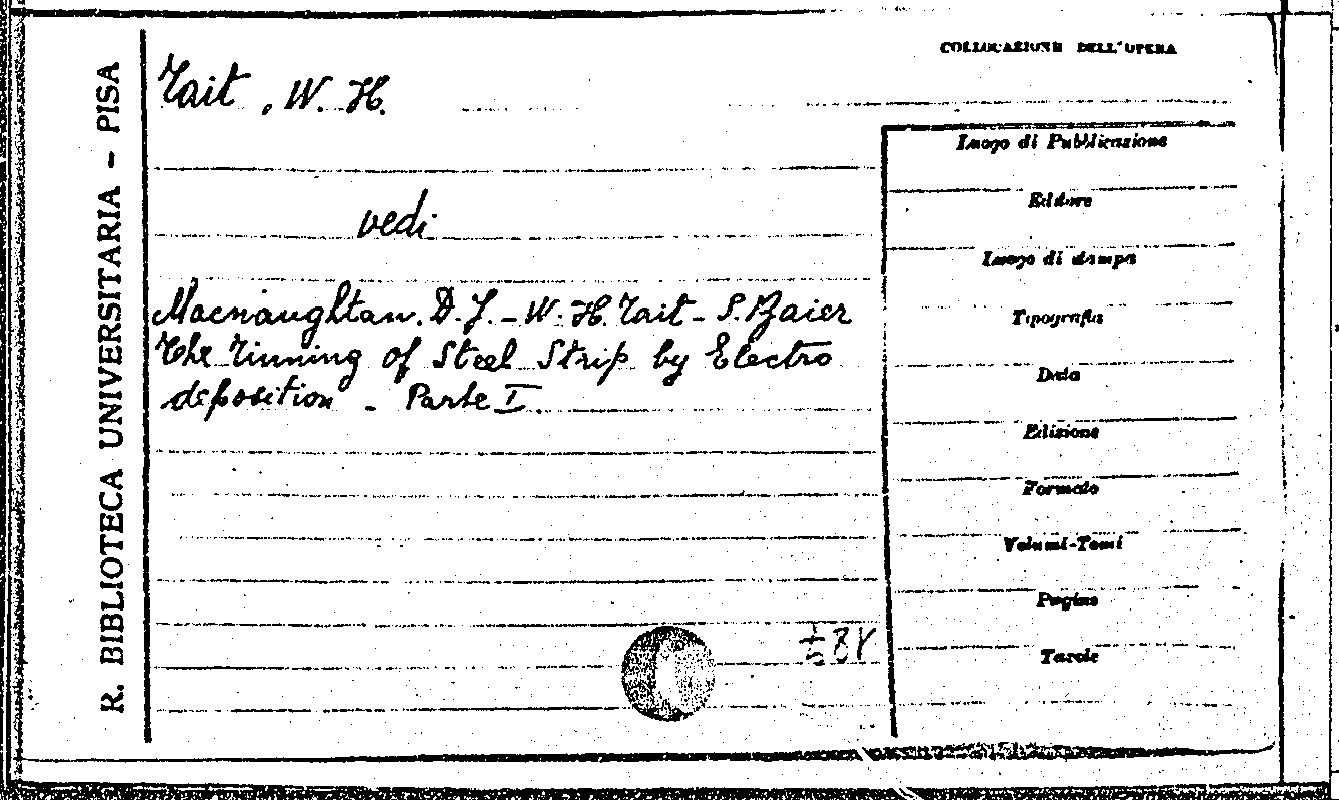 R. BIBLIOTECA UNIVERSITARIA - PISA
COLLOCAZIONE DELL'OPERA
Tait, W. H.
vedi
Macnaughtan. D. J. - W. H. Tait - S. Baier
The Tinning of Steel Strip by Electro
deposition - Parte I
Luogo di Pubblicazione
Editore
Luogo di stampa
Tipografia
Data
Edizione
Formato
Volumi-Tomi
Pagine
Tavole